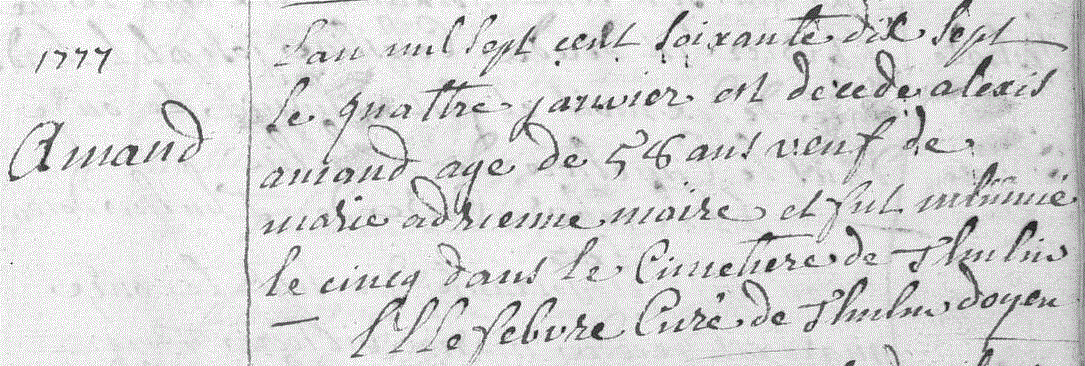 1777
Amand
L'an mil sept cent soixante dix sept
le quattre janvier est decede alexis
amand age de 58 ans veuf de
marie adrienne moire et fut inhumé
le cinq dans le Cimetiere de Thulin
lefebvre Curé de Thulin doyen